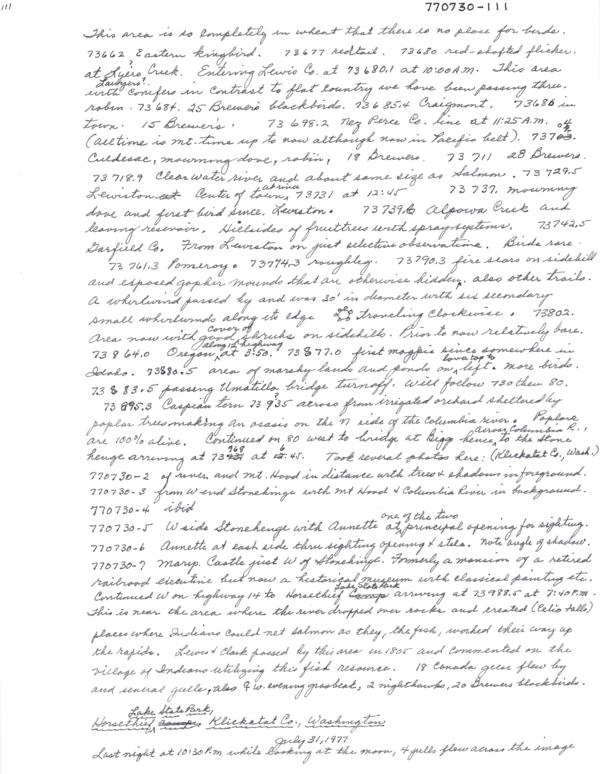 111
770730-111
This area is so completely in wheat that there is no place for birds.
73662 Eastern kingbird. 73677 redtail. 73680 red-shafted flicker.
at Lyers Creek. Entering Lewis Co. at 73680.1 at 10:00 A.M. This area
Lawyers?
with conifers in contrast to flat country we have been passing thru.
robin. 73684. 25 Brewers blackbirds. 73685.4 Craigmont. 73686 in
town. 15 Brewer's. 73698.2 Nez Perce Co. line at 11:25 A.M.
(all time is mt. time up to now although now in Pacific belt).
Culdesac, mourning dove, robin, 18 Brewers. 73711 28 Brewers.
73718.9 Clearwater river and about same size as Salmon. 73729.5
Lewiston. Center of town, at river 73731 at 12:45 73737. mourning
dove and first bird since Lewiston. 73739.6 Alpowa Creek and
leaving resevoir. Hillsides of fruit trees with spray systems. 73742.5
Garfield Co. From Lewiston on just selective observations. Birds rare.
73761.3 Pomeroy. 73774.3 roughleg. 73790.3 fire scars on sidehill
and exposed gopher mounds that are otherwise hidden. also other trails.
A whirlwind passed by and was 30' in diameter with six secondary
small whirlwinds along its edge traveling clockwise. 73802.
Area now with good cover of shrubs on sidehills. Prior to now relatively bare.
73864.0 Oregon, along highway at 3:50. 73877.0 first magpie since somewhere in
Idaho. 73880.5 area of marshy lands and ponds on left. more birds.
73883.5 passing Umatilla bridge turnoff. Will follow 730 then 80.
73895.3 Caspian tern 73935 across from irrigated orchard sheltered by
poplar trees making an oasis on the N side of the Columbia river. Poplars
are 100% alive. Continued on 80 west to bridge at Biggs hence, across Columbia R., to the Stone
henge arriving at 73968 at 6:45. Took several photos here: (Klickatat Co., Wash.)
770730-2 of river and Mt. Hood in distance with trees & shadows in foreground.
770730-3 from W end Stonehenge with Mt Hood & Columbia River in background.
770730-4 ibid
770730-5 W side Stonehenge with Annette at one of the two principal opening for sighting.
770730-6 Annette at east side thru sighting opening & stela. Note angle of shadow.
770730-7 Maryp. Castle just W of Stonehenge. Formerly a mansion of a retired
railroad executive but now a historical museum with classical painting etc.
Continued W on highway 14 to Horsethief Lake State Park arriving at 73988.5 at 7:40 P.M.
This is near the area where the river dropped over rocks and created (Celio Falls)
places where Indians could net salmon as they, the fish, worked their way up
the rapids. Lewis & Clark passed by this area in 1805 and commented on the
village of Indians utilizing this fish resource. 18 Canada geese flew by
and several gulls, also 9 W. evening grosbeak, 2 nighthawks, 20 Brewers blackbirds.
Horsethief Lake State Park, Klickatat Co., Washington
July 31, 1977
Last night at 10:30 P.m while looking at the moon, 4 gulls flew across the image